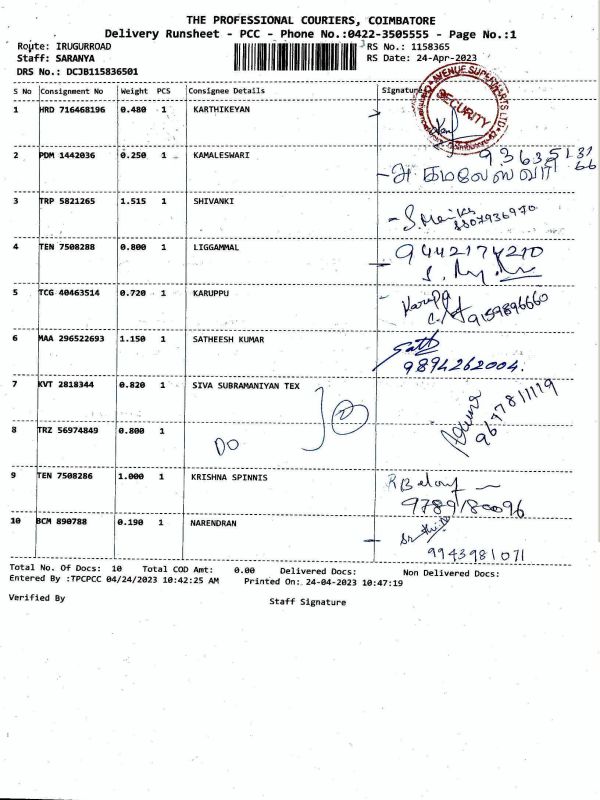 THE PROFESSIONAL COURIERS, COIMBATORE
Delivery Runsheet - PCC - Phone No.:0422-3505555 - Page No.:1
Route: IRUGURROAD RS No.: 1158365
Staff: SARANYA RS Date: 24-Apr-2023
DRS No.: DCJB115836501
S No Consignment No Weight PCS Consignee Details Signature
1 HRD 716468196 0.480 1 KARTHIKEYAN
AVENUE LTD
SECURITY
2 PDM 1442036 0.250 1 KAMALESWARI
அ கமலேஸ்வரி
3 TRP 5821265 1.515 1 SHIVANKI
4 TEN 7508288 0.800 1 LIGGAMMAL 9442174210
5 TCG 40463514 0.720 1 KARUPPU
9159896660
6 MAA 296522693 1.150 1 SATHEESH KUMAR
9894262004.
7 KVT 2818344 0.820 1 SIVA SUBRAMANIYAN TEX
9677811119
8 TRZ 56974849 0.800 1
DO
9 TEN 7508286 1.000 1 KRISHNA SPINNIS
9789180096
10 BCM 890788 0.190 1 NARENDRAN
9943981071
Total No. Of Docs: 10 Total COD Amt: 0.00 Delivered Docs: Non Delivered Docs:
Entered By :TPCPCC 04/24/2023 10:42:25 AM Printed On: 24-04-2023 10:47:19
Verified By Staff Signature